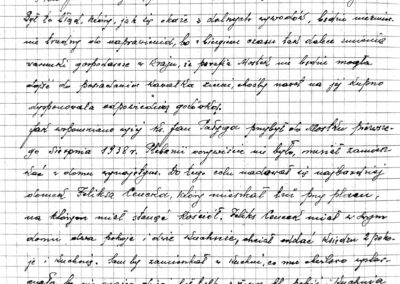 Był to błąd, który, jak się okaże z dalszych wywodów, będzie niezmier-
nie trudny do naprawienia, bo z biegiem czasu tak dalece zmienią
warunki gospodarcze w kraju, że parafia Mostek nie będzie mogła
dojść do posiadania kawałka ziemi, choćby nawet na jej kupno
dysponowała odpowiednią gotówką.
Jak wspomniano wyżej ks. Jan przybył do Mostku pierwsze-
go sierpnia 1938 r. Plebanii oczywiście nie było, musiał zamiesz-
kać w domu wynajętym. Do tego celu nadawał się najbardziej
domek Feliksa, który mieszkał tuż przy placu,
na którym miał stanąć kościół. Feliks miał w swym
domu dwa pokoje i dwie kuchnie, chciał oddać księdzu 2 poko-
je i kuchnię. Sam by zamieszkał w kuchni, co mu